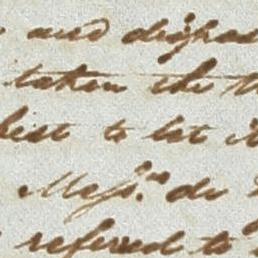 and dispos
taken the
best to let i
Mess.rs de
referred to